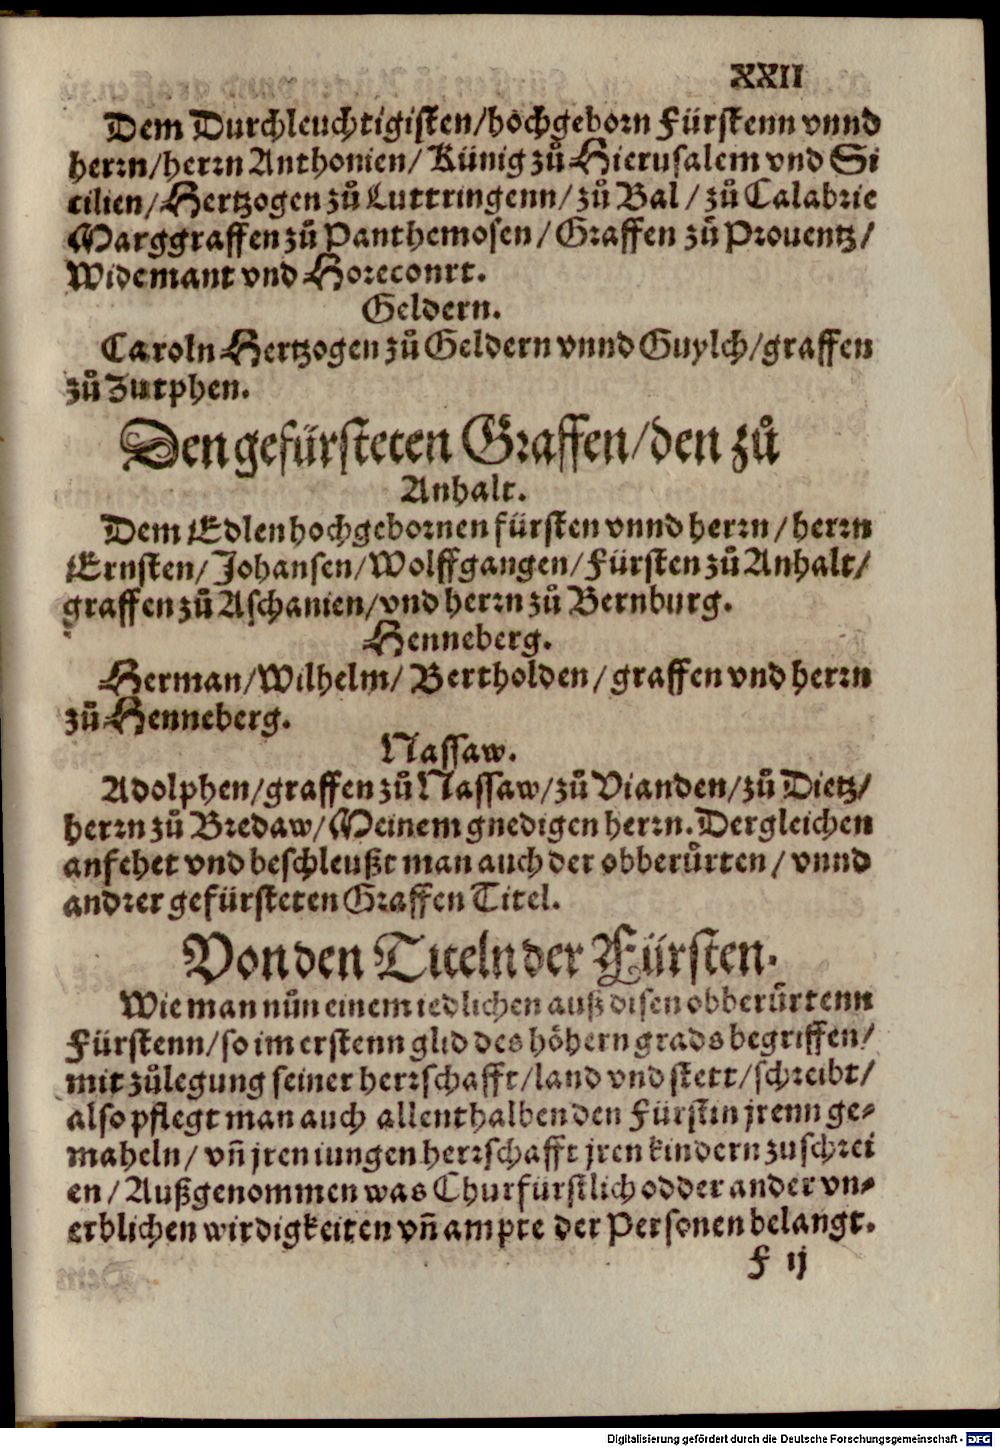 XXII
Dem Durchleuchtigisten/hochgeborn Fürstenn vnnd
herrn/herrn Anthonien/Künig zů Hierusalem vnd Si
cilien/Hertzogen zů Luttringenn/zů Bal/zů Calabrie
Marggraffen zů Panthemosen/Graffen zů Prouentz/
Widemant vnd Horecourt.
Geldern.
Caroln Hertzogen zů Geldern vnnd Guylch/graffen
zů Zutphen.
Den gefürsteten Graffen/den zů
Anhalt.
Dem Edlen hochgebornen fürsten vnnd herrn/herrn
Ernsten/Johansen/Wolffgangen/Fürsten zů Anhalt/
graffen zů Aschanien/vnd herrn zů Bernburg.
Henneberg.
Herman/Wilhelm/Bertholden/graffen vnd herrn
zů Henneberg.
Nassaw.
Adolphen/graffen zů Nassaw/zů Vianden/zů Dietz/
herrn zů Bredaw/Meinem gnedigen herrn. Dergleichen
anfehet vnd beschleußt man auch der obberůrten/vnnd
andrer gefürsteten Graffen Titel.
Von den Titeln der Fürsten.
Wie man nůn einem iedlichen auß disen obberůrtenn
Fürstenn/so im erstenn glid des höhern grads begriffen/
mit zůlegung seiner herrschafft/land vnd stett/schreibt/
also pflegt man auch allenthalben den Fürstin jrenn ge-
maheln/vñ jren iungen herrschafft jren kindern zuschrei
en/Außgenommen was Churfürstlich odder ander vn-
erblichen wirdigkeiten vñ ampte der Personen belangt.
F ij
Digitalisierung gefördert durch die Deutsche Forschungsgemeinschaft - DFG